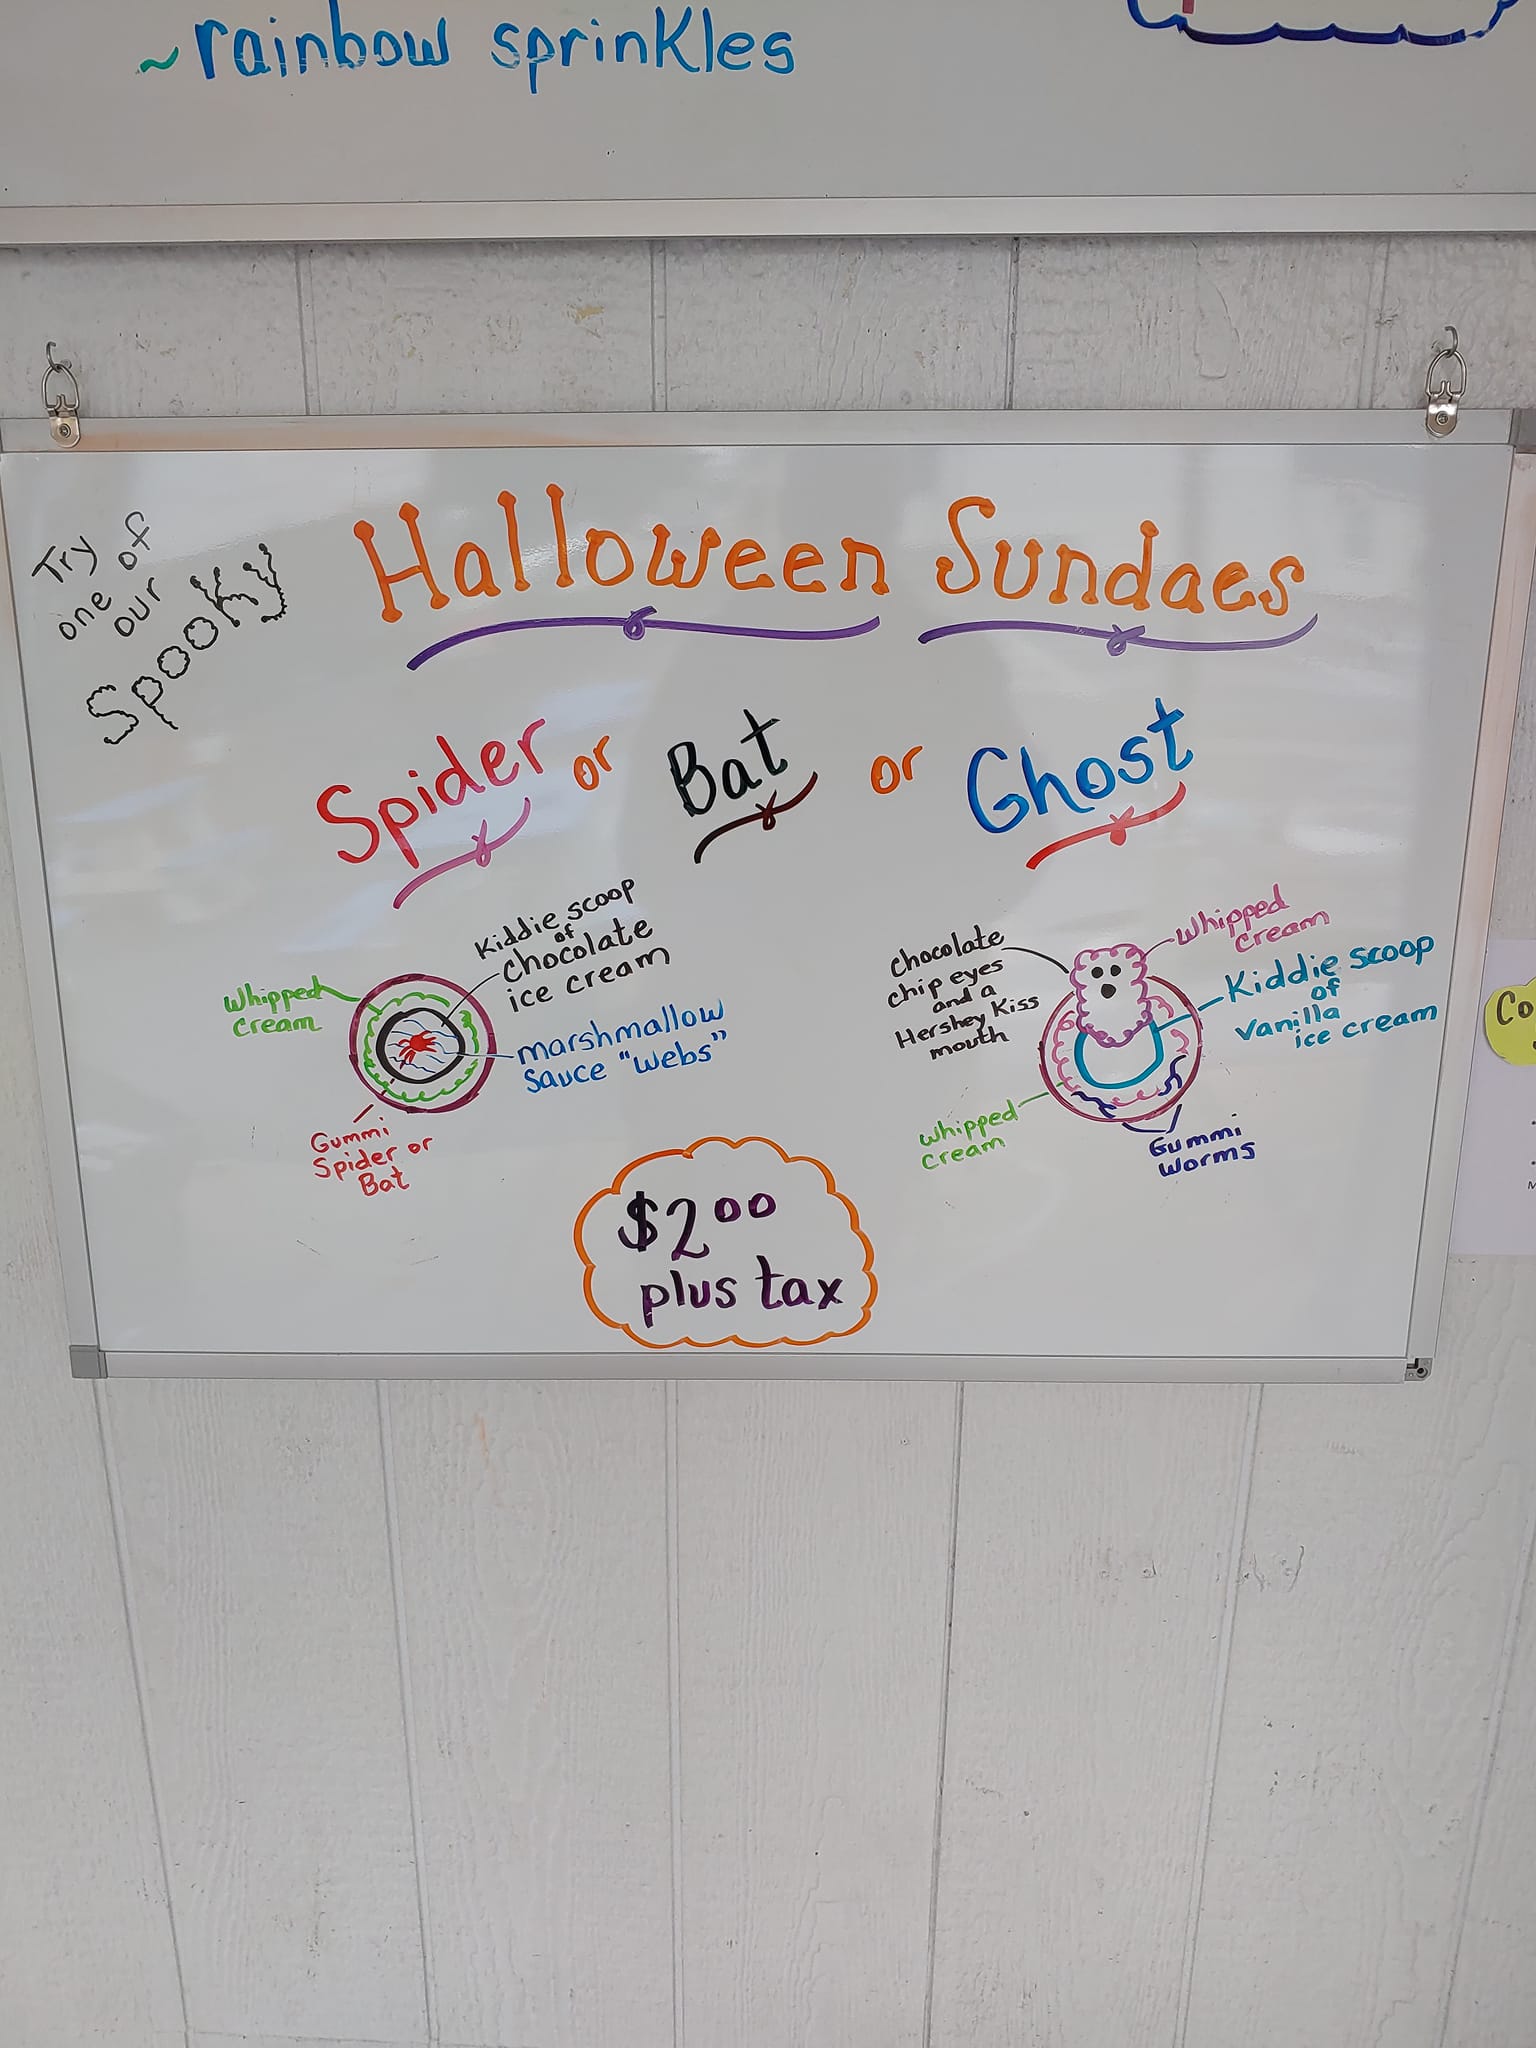 ~rainbow sprinkles
Try
one of
our
Spooky
Halloween Sundaes
Spider or Bat or Ghost
Kiddie scoop
of
chocolate
ice cream
whipped
cream
marshmallow
sauce "webs"
Gummi
Spider or
Bat
chocolate
chip eyes
and a
Hershey Kiss
mouth
whipped
cream
Kiddie scoop
of
vanilla
ice cream
whipped
cream
Gummi
worms
$2.00
plus tax
Co